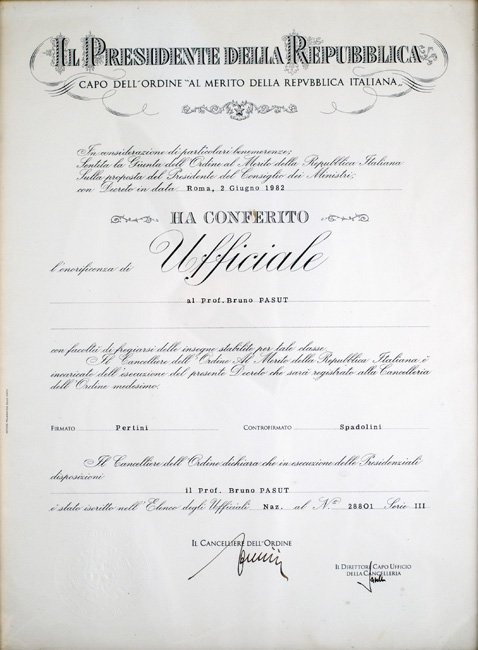 IL PRESIDENTE DELLA REPUBBLICA
CAPO DELL'ORDINE "AL MERITO DELLA REPVBBLICA ITALIANA„
In considerazione di particolari benemerenze;
Sentita la Giunta dell'Ordine al Merito della Repubblica Italiana
Sulla proposta del Presidente del Consiglio dei Ministri;
con Decreto in data Roma, 2 Giugno 1982
HA CONFERITO
l'onorificenza di Ufficiale
al Prof. Bruno PASUT
con facoltà di fregiarsi delle insegne stabilite per tale classe.
Il Cancelliere dell'Ordine Al Merito della Repubblica Italiana è
incaricato dell'esecuzione del presente Decreto che sarà registrato alla Cancelleria
dell'Ordine medesimo.
FIRMATO Pertini CONTROFIRMATO Spadolini
Il Cancelliere dell'Ordine dichiara che in esecuzione delle Presidenziali
disposizioni
il Prof. Bruno PASUT
è stato iscritto nell'Elenco degli Ufficiali Naz. al N.° 28801 Serie III
IL CANCELLIERE DELL'ORDINE
IL DIRETTORE CAPO UFFICIO
DELLA CANCELLERIA